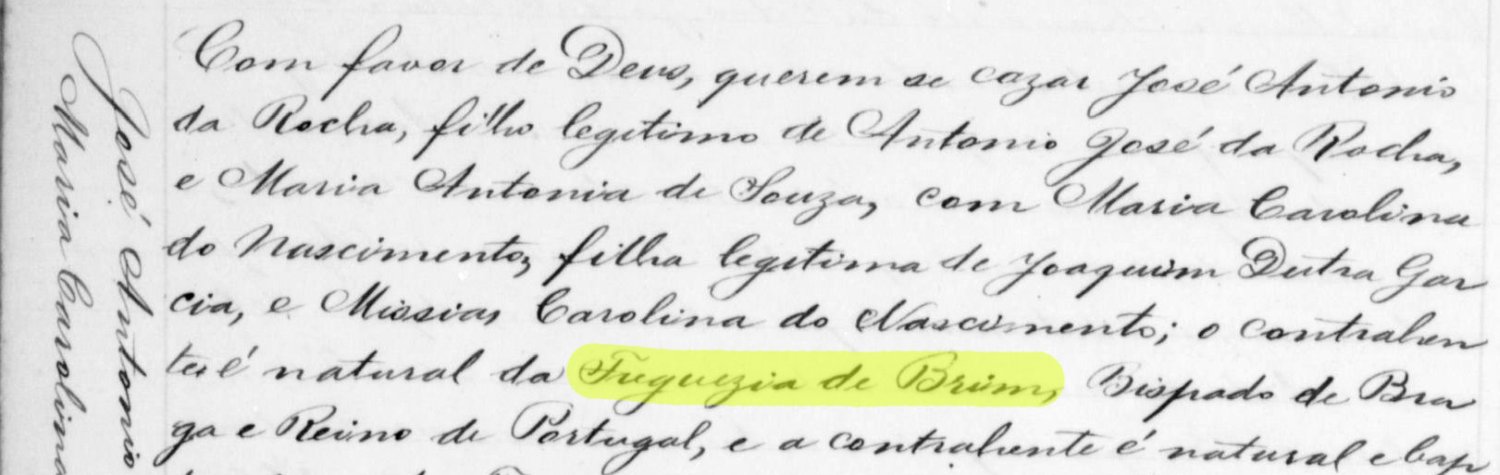 José Antonio
Maria Carolina
Com favor de Deus, querem se cazar José Antonio
da Rocha, filho legitimo de Antonio José da Rocha,
e Maria Antonia de Souza, com Maria Carolina
do Nascimento, filha legitima de Joaquim Dutra Gar
cia, e Missias Carolina do Nascimento; o contrahen
te é natural da Freguezia de Brum, Bispado de Bra
ga e Reino de Portugal, e a contrahente é natural e bap